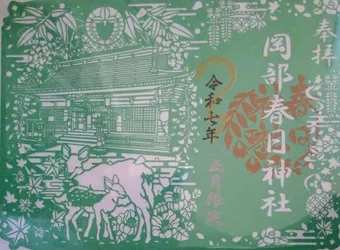 奉拝
岡部春日神社
春日
令和七年
正月